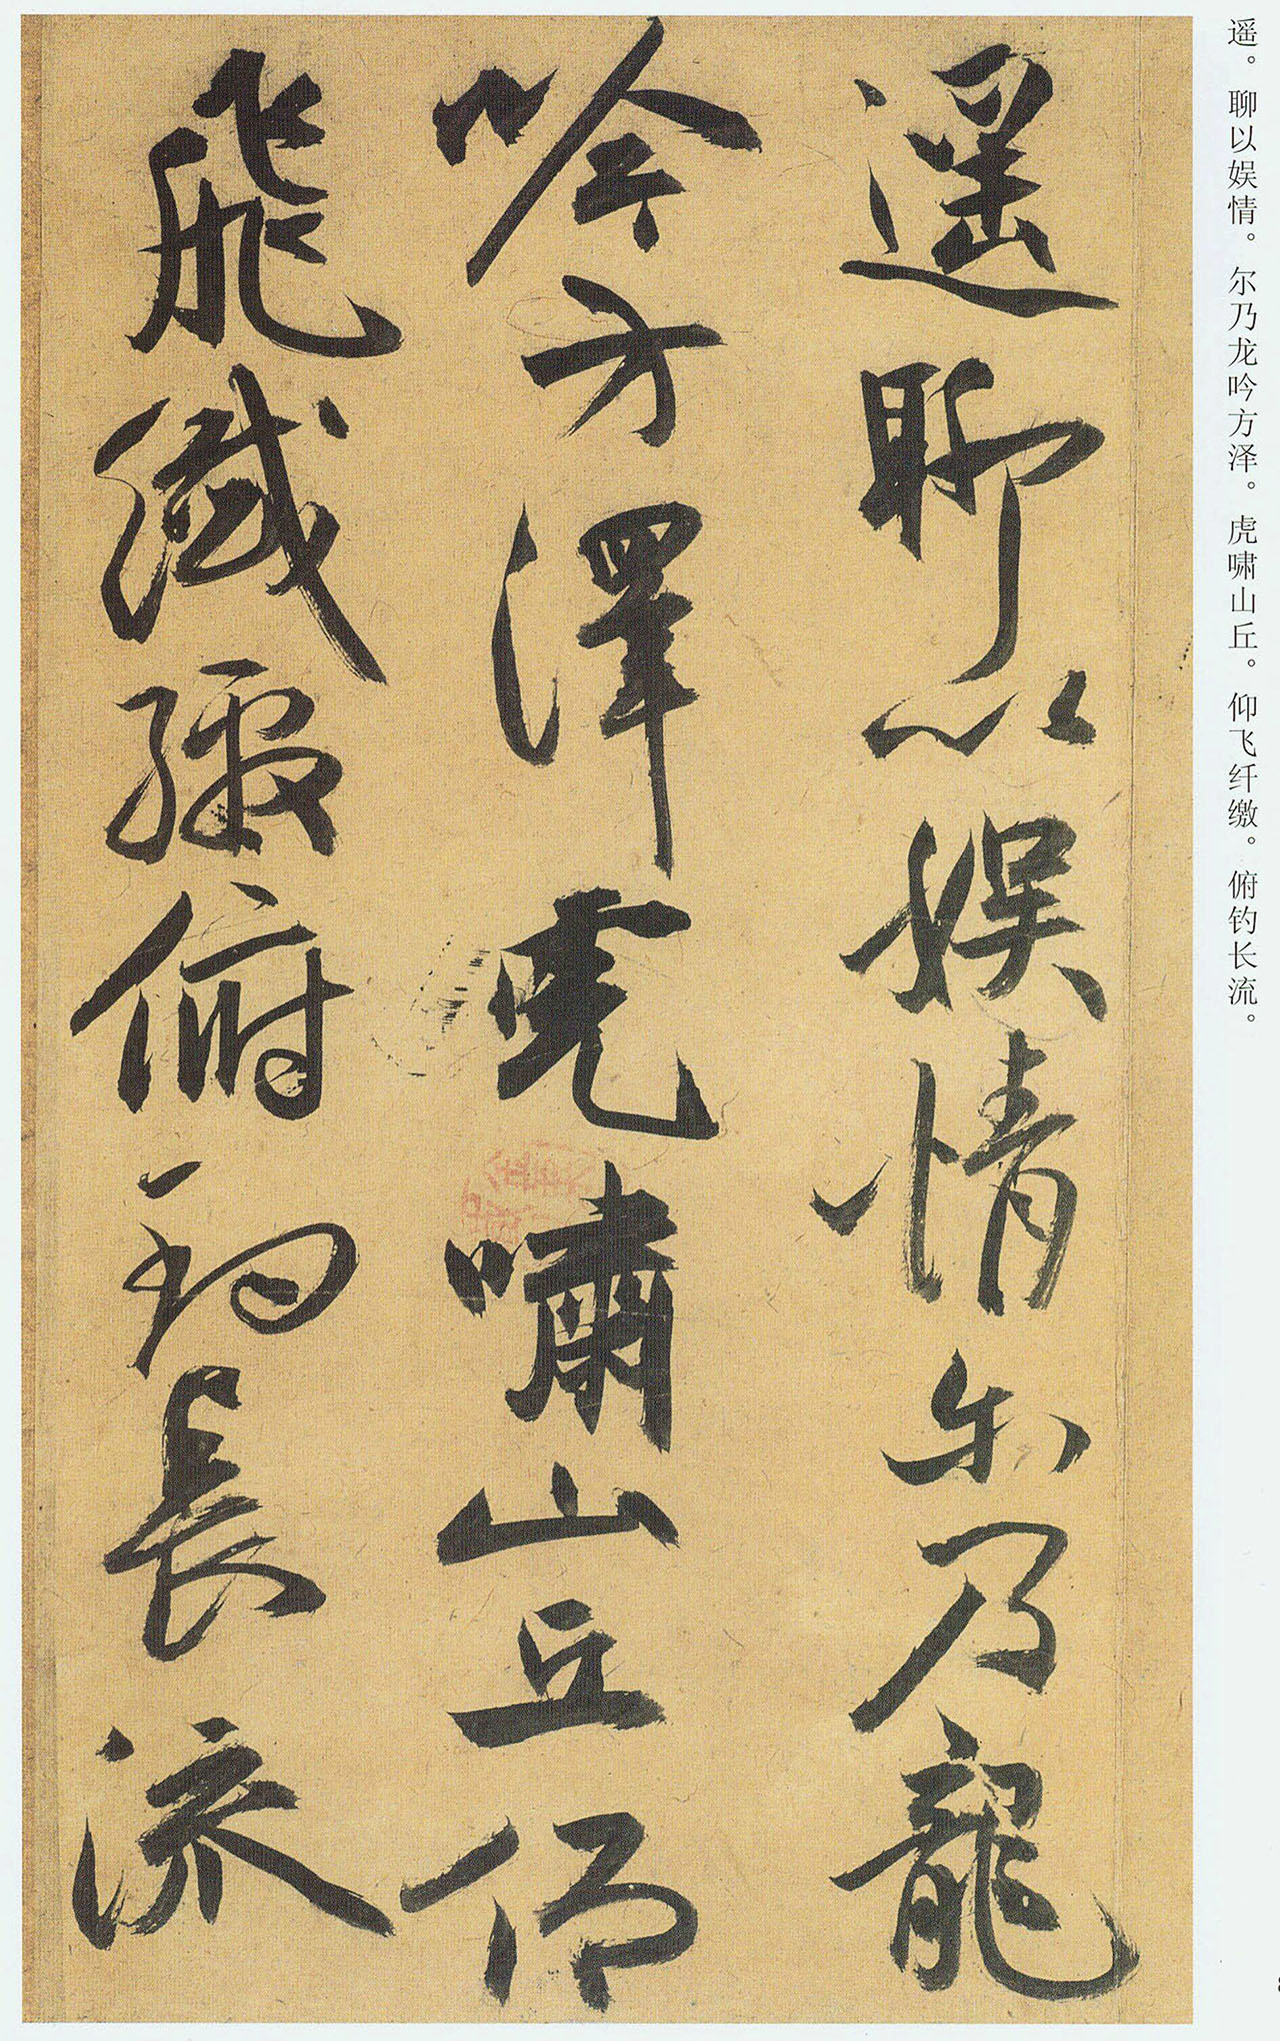 遥。聊以娱情。尔乃龙吟方泽。虎啸山丘。仰飞纤缴。俯钓长流。
遥聊以娱情尔乃龍
吟方澤虎嘯山丘仰
飛纖繳俯钓長流